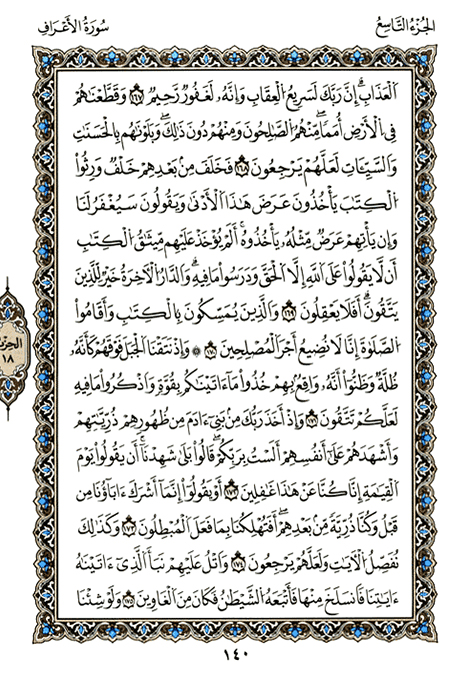 الجُزْءُ التَّاسِعُ
سُورَةُ الأَعْرَافِ
ٱلْعَذَابِ إِنَّ رَبَّكَ لَسَرِيعُ ٱلْعِقَابِ وَإِنَّهُۥ لَغَفُورٌ رَّحِيمٌ ١٦٧ وَقَطَّعْنَٰهُمْ
فِى ٱلْأَرْضِ أُمَمًا مِّنْهُمُ ٱلصَّٰلِحُونَ وَمِنْهُمْ دُونَ ذَٰلِكَ وَبَلَوْنَٰهُم بِٱلْحَسَنَٰتِ
وَٱلسَّيِّـَٔاتِ لَعَلَّهُمْ يَرْجِعُونَ ١٦٨ فَخَلَفَ مِنۢ بَعْدِهِمْ خَلْفٌ وَرِثُوا۟
ٱلْكِتَٰبَ يَأْخُذُونَ عَرَضَ هَٰذَا ٱلْأَدْنَىٰ وَيَقُولُونَ سَيُغْفَرُ لَنَا
وَإِن يَأْتِهِمْ عَرَضٌ مِّثْلُهُۥ يَأْخُذُوهُ أَلَمْ يُؤْخَذْ عَلَيْهِم مِّيثَٰقُ ٱلْكِتَٰبِ
أَن لَّا يَقُولُوا۟ عَلَى ٱللَّهِ إِلَّا ٱلْحَقَّ وَدَرَسُوا۟ مَا فِيهِ وَٱلدَّارُ ٱلْـَٔاخِرَةُ خَيْرٌ لِّلَّذِينَ
يَتَّقُونَ أَفَلَا يَعْقِلُونَ ١٦٩ وَٱلَّذِينَ يُمَسِّكُونَ بِٱلْكِتَٰبِ وَأَقَامُوا۟
ٱلصَّلَوٰةَ إِنَّا لَا نُضِيعُ أَجْرَ ٱلْمُصْلِحِينَ ١٧٠ ۞ وَإِذْ نَتَقْنَا ٱلْجَبَلَ فَوْقَهُمْ كَأَنَّهُۥ
ظُلَّةٌ وَظَنُّوٓا۟ أَنَّهُۥ وَاقِعٌۢ بِهِمْ خُذُوا۟ مَآ ءَاتَيْنَٰكُم بِقُوَّةٍ وَٱذْكُرُوا۟ مَا فِيهِ
لَعَلَّكُمْ تَتَّقُونَ ١٧١ وَإِذْ أَخَذَ رَبُّكَ مِنۢ بَنِىٓ ءَادَمَ مِن ظُهُورِهِمْ ذُرِّيَّتَهُمْ
وَأَشْهَدَهُمْ عَلَىٰٓ أَنفُسِهِمْ أَلَسْتُ بِرَبِّكُمْ قَالُوا۟ بَلَىٰ شَهِدْنَآ أَن تَقُولُوا۟ يَوْمَ
ٱلْقِيَٰمَةِ إِنَّا كُنَّا عَنْ هَٰذَا غَٰفِلِينَ ١٧٢ أَوْ تَقُولُوٓا۟ إِنَّمَآ أَشْرَكَ ءَابَآؤُنَا مِن
قَبْلُ وَكُنَّا ذُرِّيَّةً مِّنۢ بَعْدِهِمْ أَفَتُهْلِكُنَا بِمَا فَعَلَ ٱلْمُبْطِلُونَ ١٧٣ وَكَذَٰلِكَ
نُفَصِّلُ ٱلْـَٔايَٰتِ وَلَعَلَّهُمْ يَرْجِعُونَ ١٧٤ وَٱتْلُ عَلَيْهِمْ نَبَأَ ٱلَّذِىٓ ءَاتَيْنَٰهُ
ءَايَٰتِنَا فَٱنسَلَخَ مِنْهَا فَأَتْبَعَهُ ٱلشَّيْطَٰنُ فَكَانَ مِنَ ٱلْغَاوِينَ ١٧٥ وَلَوْ شِئْنَا
الحزب
١٨
١٤٠